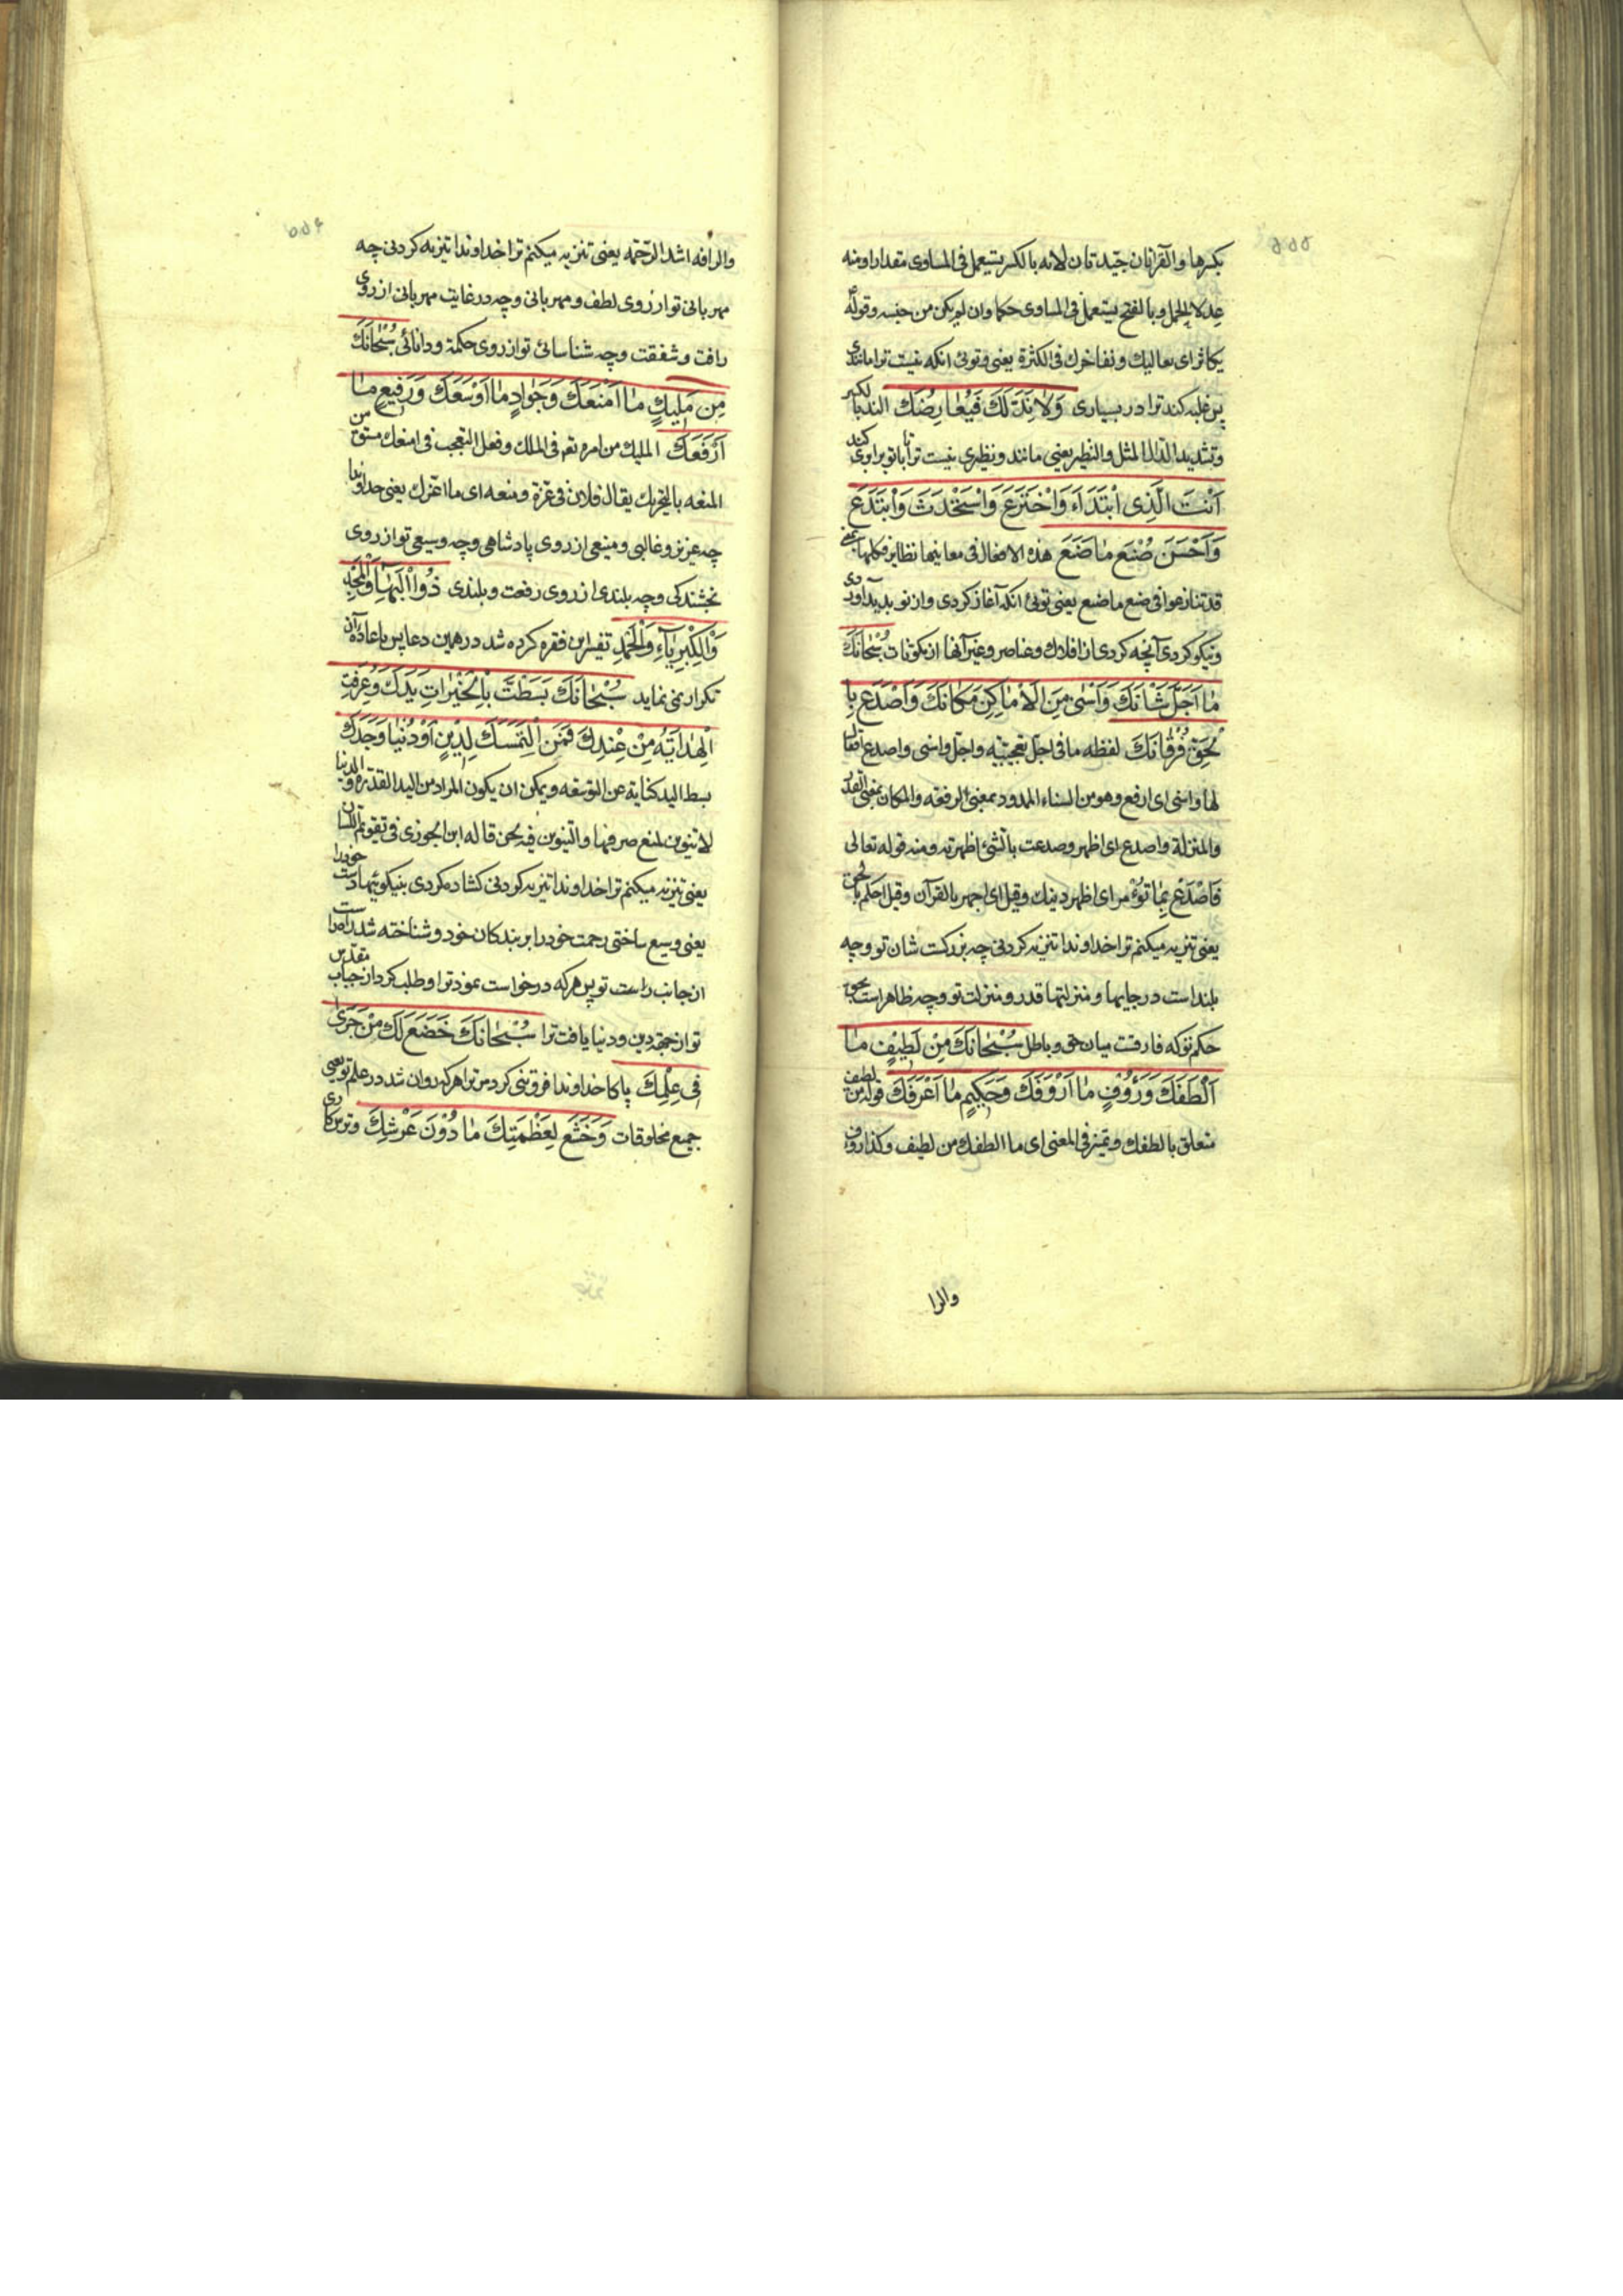 بکسرها والقرائتان جیدتان لانه بالکسر یستعمل فی المساوی مقدارا ومنه
عدلا الحمل وبالفتح یستعمل فی المساوی حکما وان لم یکن من جنسه وقوله
یکاثر ای یغالبک ویفاخرک فی الکثرة یعنی وتوئی انکه نیست ترا مانندی
پس غلبه کند ترا در بسیاری وَلا نِدَّ لَكَ فَيُعٰارِضَكَ الند بالکسر
وتشدید الدال المثل والنظیر یعنی مانند ونظیری نیست ترا تا با تو برابری کند
اَنْتَ الَّذِی ابْتَدَاءَ وَاخْتَرَعَ وَاسْتَحْدَثَ وَابْتَدَعَ
وَاَحْسَنَ صُنْعَ مٰا صَنَعَ هذه الافعال فی معانیها نظایر فکلها
قد تنازعوا فی صنع ما صنع یعنی توئی انکه آغاز کردی واز نو پدید آوردی
ونیکو کردی آنچه کردی از افلاک وعناصر وغیر آنها از مکونات سُبْحٰانَكَ
مٰا اَجَلَّ شَانَكَ وَاَسْنٰی مِنَ الْاَمٰاکِنِ مَکٰانَكَ وَاَصْدَعَ بِا
لْحَقِّ فُرْقٰانَكَ لفظه ما فی اجل تعجبیّه واجل واسنی واصدع افعال
لها واسنی ای ارفع وهو من السناء الممدود بمعنی الرفعه والمکان بمعنی القدر
والمنزلة واصدع ای اظهر وصدعت بالشیء اظهرته ومنه قوله تعالی
فَاصْدَعْ بِمٰا تُؤْمَر ای اظهر دینك وقیل ای اجهر بالقرآن وقیل احکم بالحق
یعنی تنزیه میکنم ترا خداوندا تنزیه کردنی چه بزرکست شان تو وچه
بلند است در جایها ومنزلتها قدر ومنزلت تو وچه ظاهر است بحق
حکم تو که فارقست میان حق وباطل سُبْحٰانَكَ مِنْ لَطِیْفٍ مٰا
اَلْطَفَكَ وَرَؤُفٍ مٰا اَرْوَفَكَ وَحَکِیمٍ مٰا اَعْرَفَكَ قوله من لطیف
متعلق بالطفك وتمیز فی المعنی ای ما الطفك من لطیف وکذا رؤف
والرا
والرافه اشد الرحمة یعنی تنزیه میکنم ترا خداوندا تنزیه کردنی چه
مهربانی تو از روی لطف ومهربانی وچه در غایت مهربانی از روی
رافت وشفقت وچه شناسائی تو از روی حکمة ودانائی سُبْحٰانَكَ
مِن مَلِیكٍ مٰا اَمْنَعَكَ وَجَوٰادٍ مٰا اَوْسَعَكَ وَرَفِیعٍ مٰا
اَرْفَعَكَ الملیك من امره تم فی الملك وفعل التعجب فی امنعك مشتق من
المنعه بالتحریك یقال فلان فی عزة ومنعه ای ما اعزك یعنی خداوندا
چه عزیز وغالبی ومنیعی از روی پادشاهی وچه وسیعی تو از روی
بخشندکی وچه بلندی از روی رفعت وبلندی ذُوا الْبَهٰاءِ وَالْمَجْدِ
وَالْکِبْرِیٰاءِ وَالْحَمْدِ تفسیر این فقره کرده شد در همین دعا پس باعاده آن
تکرار نمی نماید سُبْحٰانَكَ بَسَطْتَّ بِالْخَیْرٰاتِ یَدَكَ وَعُرِفَتِ
الْهِدٰایَةُ مِنْ عِنْدِكَ فَمَنِ الْتَمَسَكَ لِدِیْنٍ اَوْ دُنْیٰا وَجَدَكَ
بسط الید کنایة عن التوسعه ویمکن ان یکون المراد من الید القدرة والدنیا
لا تنوین لمنع صرفها والتنوین فیه لحن قاله ابن الجوزی فی تقویم اللسان
یعنی تنزیه میکنم ترا خداوندا تنزیه کردنی کشاده کردی بنیکوئیها دست خود را
یعنی وسیع ساختی رحمت خود را بر بندکان خود وشناخته شد راه راست
از جانب راست تو پس هر که درخواست نمود ترا وطلب کرد از جناب مقدس
تو از جهة دین ودنیا یافت ترا سُبْحٰانَكَ خَضَعَ لَكَ مَنْ جَرٰی
فِی عِلْمِكَ پاکا خداوندا فروتنی کرد مر ترا هر که روان شد در علم تو یعنی
جمیع مخلوقات وَخَشَعَ لِعَظْمَتِكَ مٰا دُوْنَ عَرْشِكَ وترسکاری